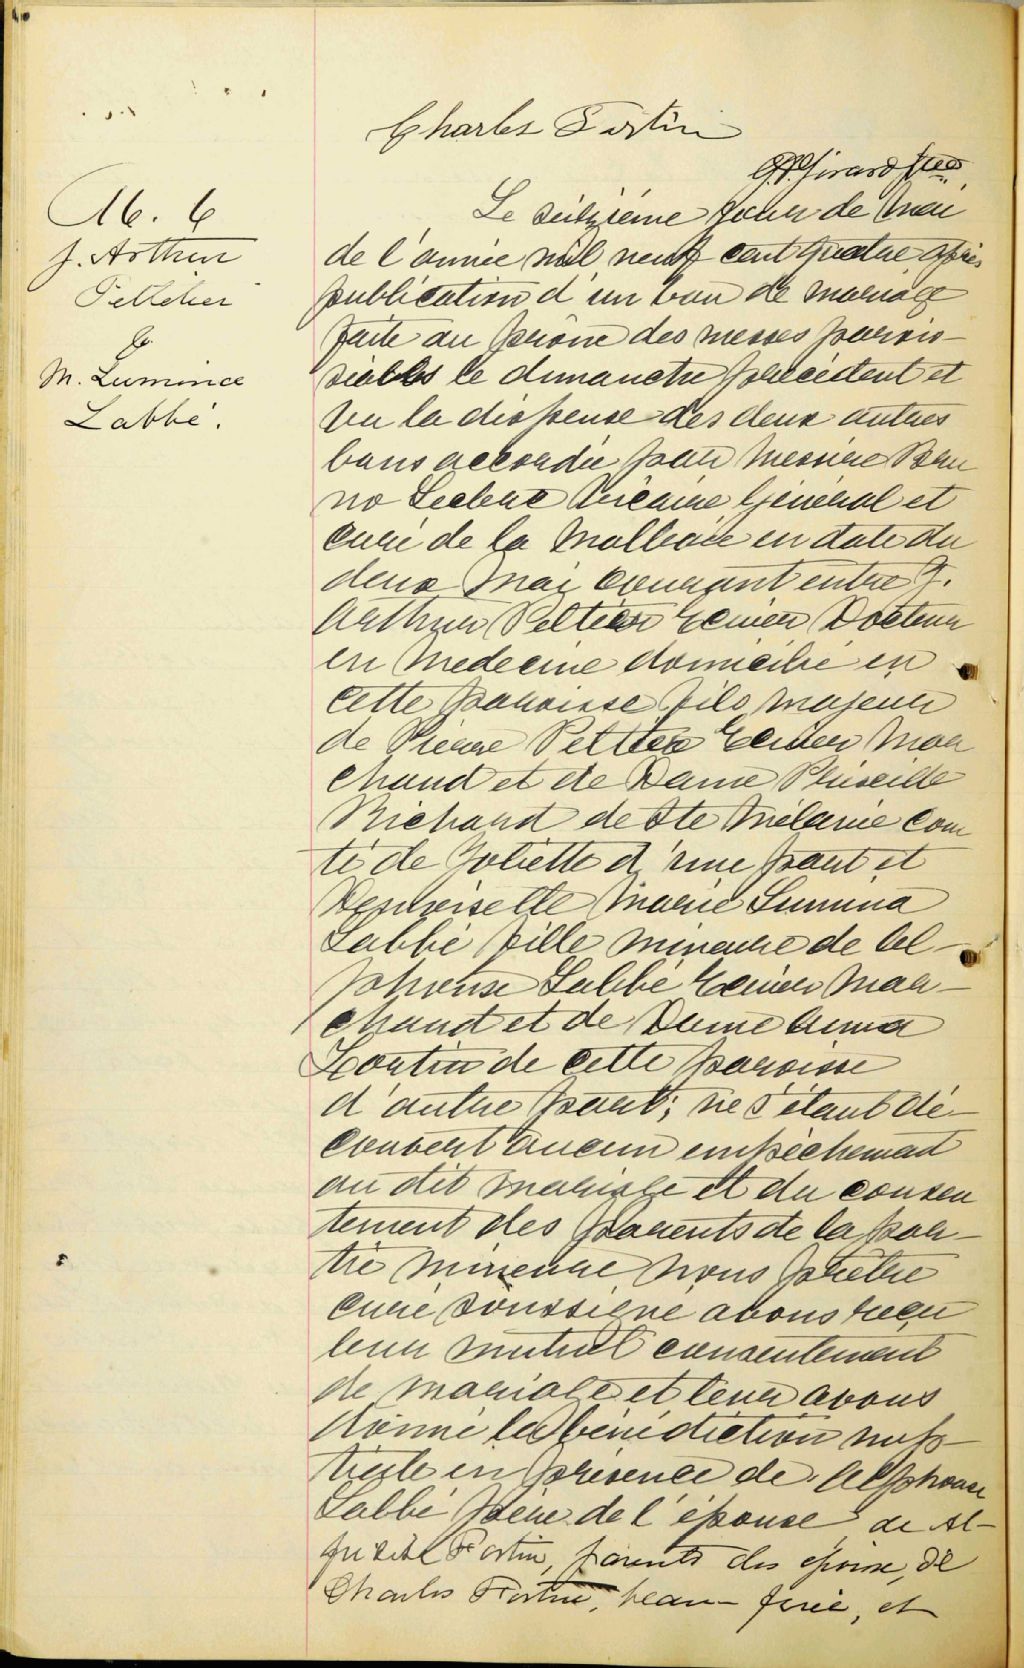 Charles Fortin
Girard Ptre
M. 6
J. Arthur
Pelletier
&
M. Lumina
Labbé.
Le seizième jour de Mai
de l'année mil neuf cent quatre après
publication d'un ban de mariage
faite au prône des messes parois-
siales le dimanche précédent et
vu la dispense des deux autres
bans accordée par Messire Bru
no Leclerc Vicaire Général et
curé de la Malbaie en date du
deux Mai courant entre J.
Arthur Peltier Ecuier Docteur
en Medecine domicilié en
cette paroisse fils majeur
de Pierre Peltier Ecuier Mar
chand et de Dame
Richard de Ste Mélanie com
té de Joliette d'une part et
Demoiselle Marie Lumina
Labbé fille mineure de Al-
phonse Labbé Ecuier Mar-
chand et de Dame Anna
Fortin de cette paroisse
d'autre part; ne s'étant dé-
couvert aucun empêchement
au dit mariage et du consen
tement des parents de la par-
tie mineure nous prêtre
curé soussigné avons reçu
leur mutuel consentement
de mariage et leur avons
donné la bénédiction nup-
tiale en présence de Alphonse
Labbé père de l'épouse, de Al-
Fortin, parents des époux, de
Charles Fortin, beau-frère, et